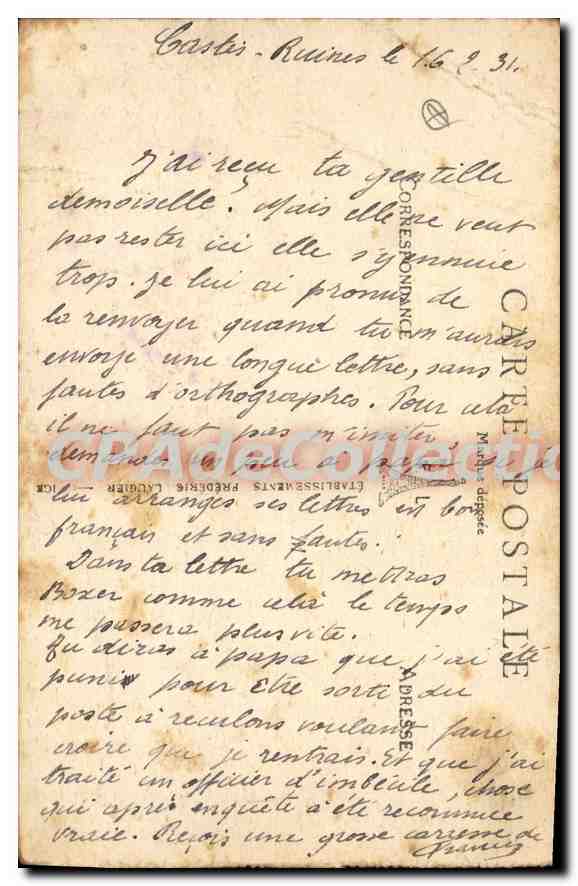 Castis-Ruines le 16 2 31.
J'ai reçu ta gentille
demoiselle. Mais elle ne veut
pas rester ici elle s'yennuie
trop. Je lui ai promis de
la renvoyer quand tu m'aurais
envoyé une longue lettre, sans
fautes d'orthographes. Pour cela
il ne faut pas m'imiter,
demandes un peu à papa si je
lui arranges ses lettres en bon
français et sans fautes!
Dans ta lettre tu mettras
Boxer comme celà le temps
me passera plus vite.
Tu diras à papa que j'ai été
puni pour être sorti du
poste à reculons voulant faire
croire que je rentrais. Et que j'ai
traité un officier d'imbécile, chose
qui après enquête a été reconnue
vraie. Reçois une grosse carresse de
Francis
CARTE POSTALE
Marques déposée
CORRESPONDANCE
ADRESSE
ÉTABLISSEMENTS FRÉDÉRIC LAUGIER — NICE
CPAdeCollection